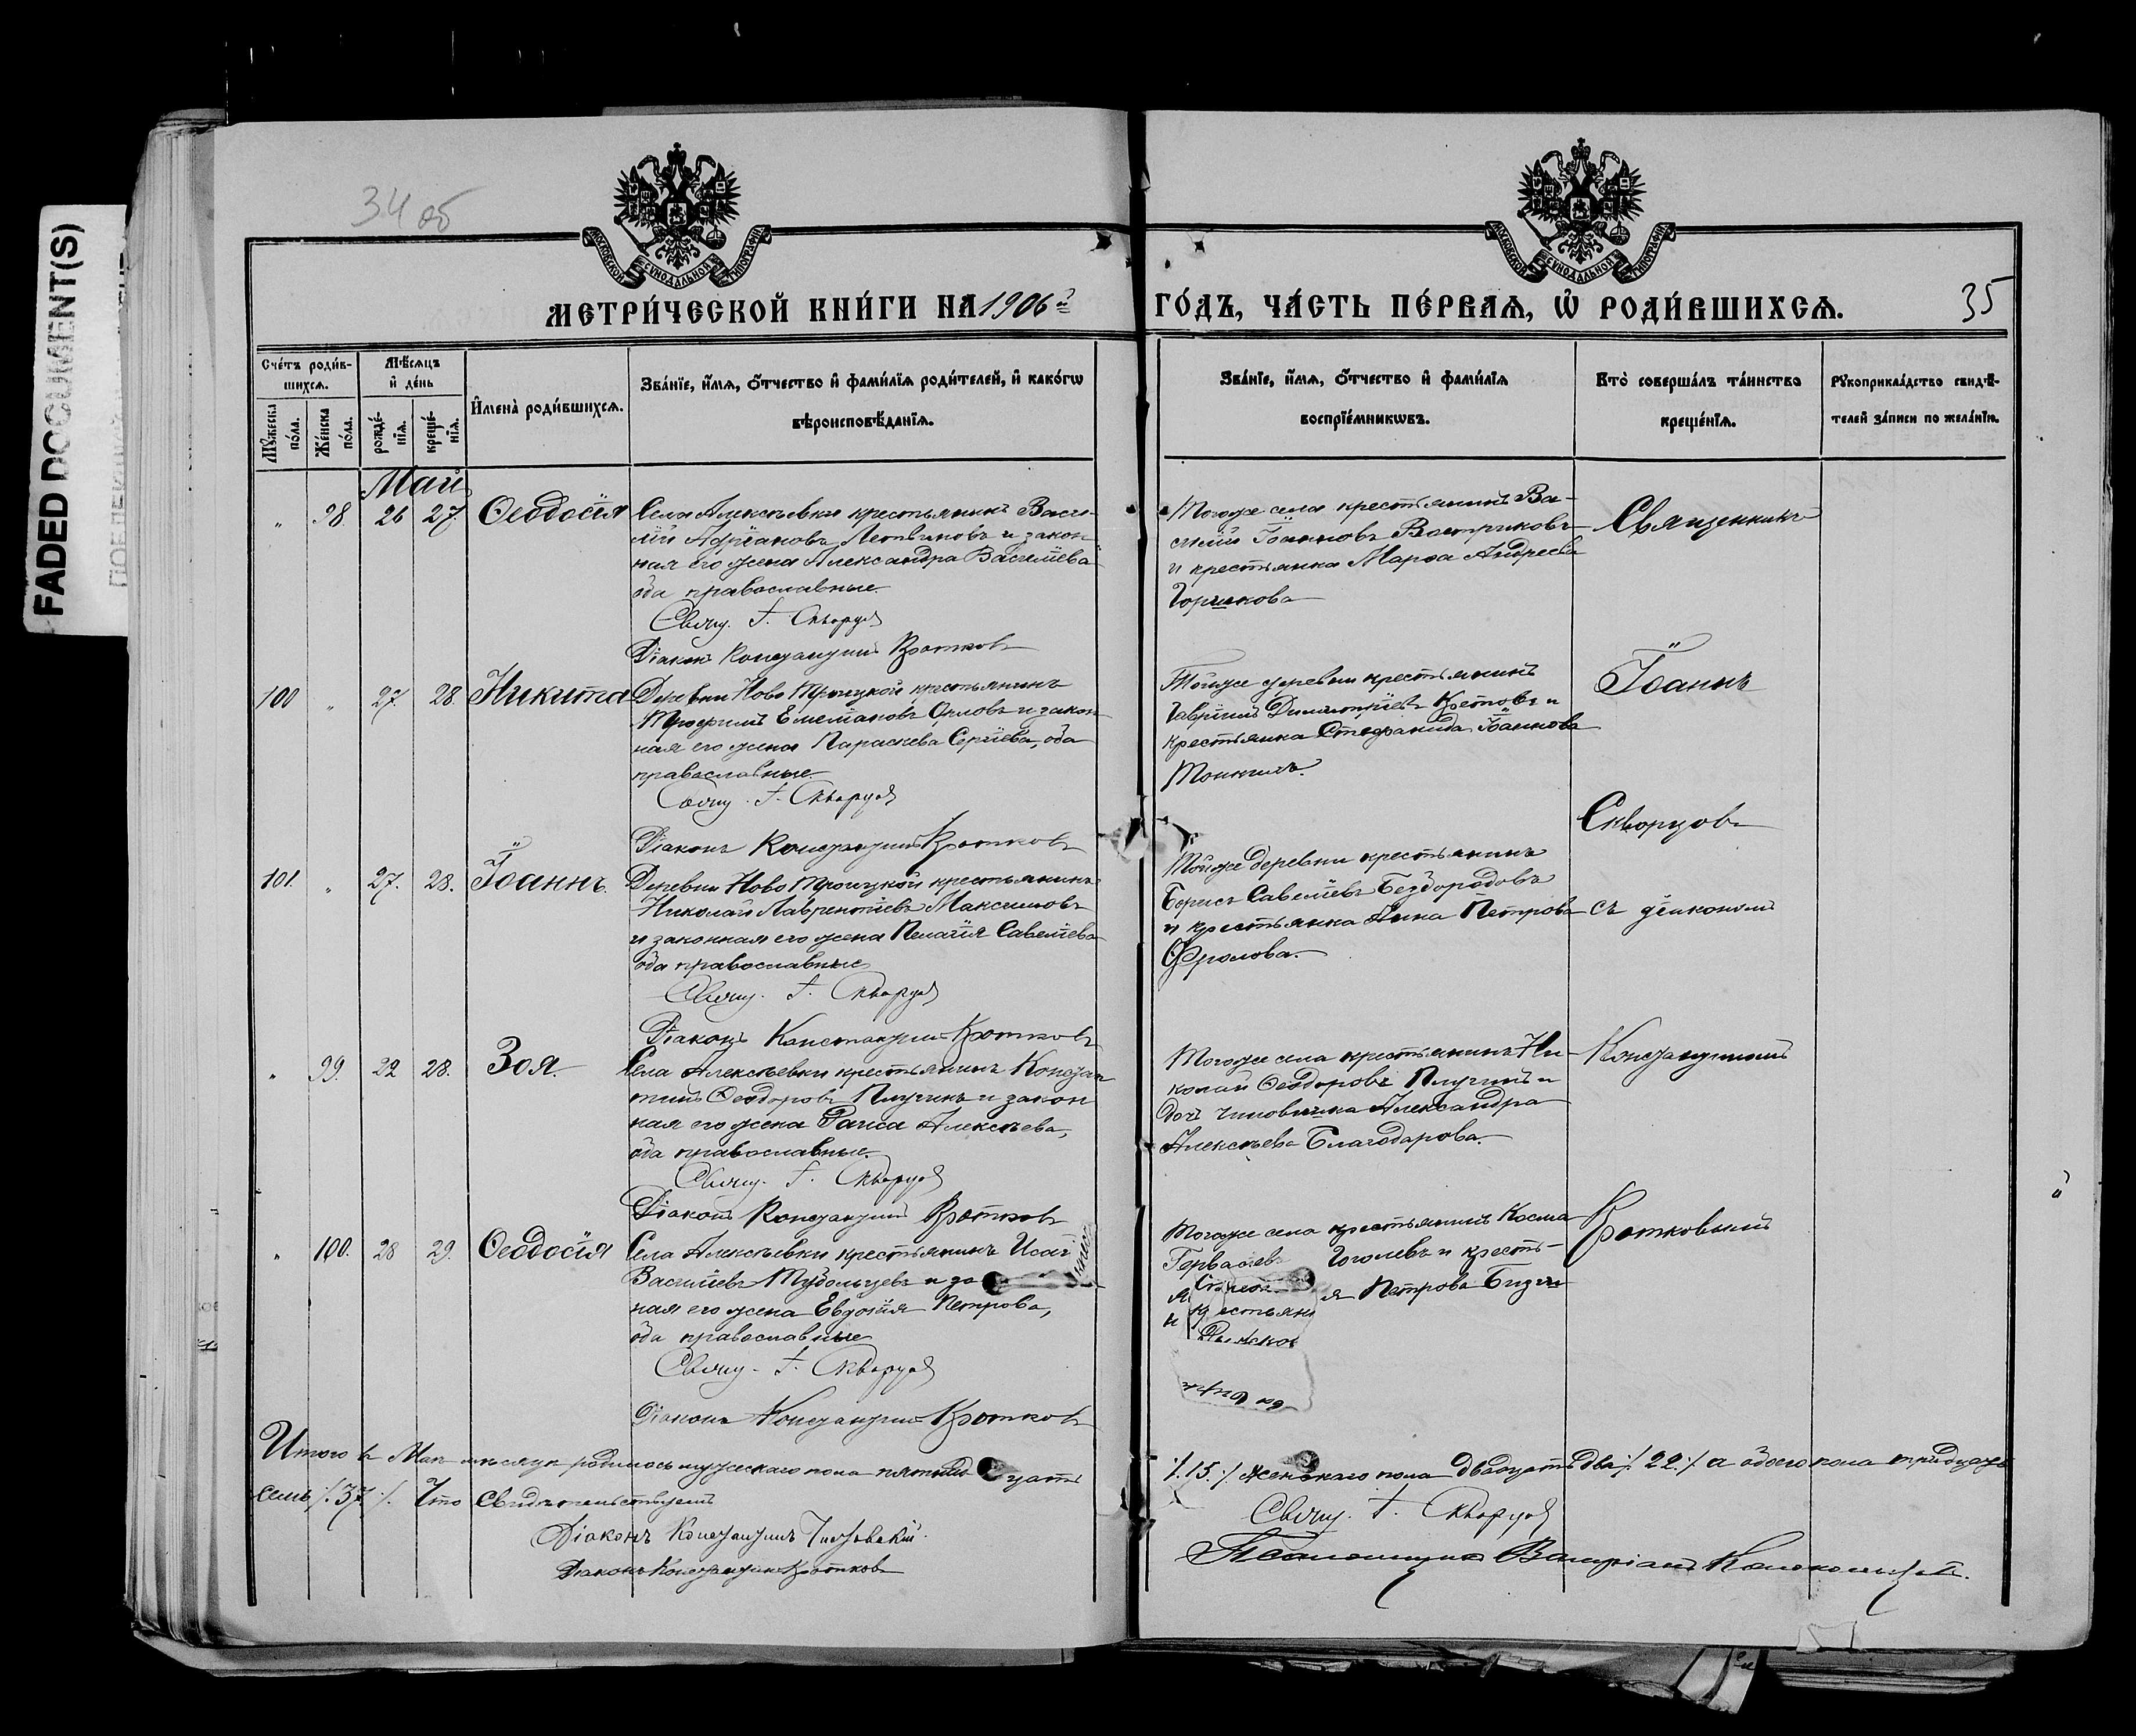 FADED DOCUMENT(S)
34 об
МОСКОВСКОЙ СѴНОДАЛЬНОЙ ТИПОГРАФІИ
МОСКОВСКОЙ СѴНОДАЛЬНОЙ ТИПОГРАФІИ
МЕТРИ́ЧЕСКОЙ КНИ́ГИ НА 1906й ГО́ДЪ, ЧА́СТЬ ПЕ́РВАЯ, Ѡ҆ РОДИ́ВШИХСЯ.
35
Сче́тъ роди́в-
шихсѧ.
Мѣ́сѧцъ
и҆ де́нь
И҆мена̀ роди́вшихсѧ.
Зва́нїе, и҆́мѧ, ѻ҆́тчество и҆ фами́лїѧ роди́телей, и҆ како́гѡ
вѣроисповѣ́данїѧ.
Зва́нїе, и҆́мѧ, ѻ҆́тчество и҆ фами́лїѧ
воспрїе́мникѡвъ.
Кто̀ соверша́лъ та́инство
креще́нїѧ.
Рꙋкоприкла́дство свидѣ́-
телей за́писи по жела́нїю.
Мꙋ́жеска
по́ла.
Же́нска
по́ла.
рожде́-
нїѧ.
креще́-
нїѧ.
Май
" 98 26 27. Ѳеодосія
Села Алексѣевки крестьянинъ Васи-
лій Адріановъ Литвиновъ и закон
ная его жена Александра Васильева
оба православные.
Свящ. І. Скворцов
Діаконъ Константинъ Кротковъ
Тогоже села крестьянинъ Ва-
силій Іоанновъ Востриковъ
и крестьянка Марѳа Андреева
Горшкова
Священникъ
100 " 27. 28. Никита
Деревни Ново Троицкой крестьянинъ
Трофимъ Емеліановъ Орловъ и закон
ная его жена Параскева Сергіева, оба
православные.
Свящ. І. Скворцов
Діаконъ Константинъ Кротковъ
Тойже деревни крестьянинъ
Гавріилъ Димитріевъ Кретовъ и
крестьянка Стефанида Іоаннова
Іоаннъ
Скворцовъ
101. " 27. 28. Іоаннъ.
Деревни Ново Троицкой крестьянинъ
Николай Лаврентіевъ Максимовъ
и законная его жена Пелагія Савеліева
оба православные
Свящ. І. Скворцов
Діаконъ Константинъ Кротковъ
Тойже деревни крестьянинъ
Борисъ Савеліевъ Безбородовъ
и крестьянка Анна Петрова
Фролова.
съ діакономъ
" 99. 22 28. Зоя.
Села Алексѣевки крестьянинъ Констан
тинъ Ѳеодоровъ Плучинъ и закон
ная его жена Раиса Алексѣева,
оба православные.
Свящ. І. Скворцов
Діаконъ Константинъ Кротковъ
Тогоже села крестьянинъ Ни-
колай Ѳеодоровъ Плучинъ и
дочь чиновника Александра
Алексѣева Благодарова.
Константиномъ
" 100. 28 29. Ѳеодосія
Села Алексѣевки крестьянинъ Исаія
Васильевъ и за
ная его жена Евдокія Петрова,
оба православные
Свящ. І. Скворцов
Діаконъ Константинъ Кротковъ
Тогоже села крестьянинъ Косма
Гервасіевъ Гоголевъ и кресть-
я Петрова
Кротковымъ
Итого въ Маѣ мѣсяцѣ родилось мужескаго пола пятнадцать
/.15./ женскаго пола двадцать два /.22./ а обоего пола тридцать
семь /.37./. Что свидѣтельствуемъ
Свящ. І. Скворцов
Діаконъ Константинъ
Діаконъ Константинъ Кротковъ
Псаломщикъ Валеріанъ